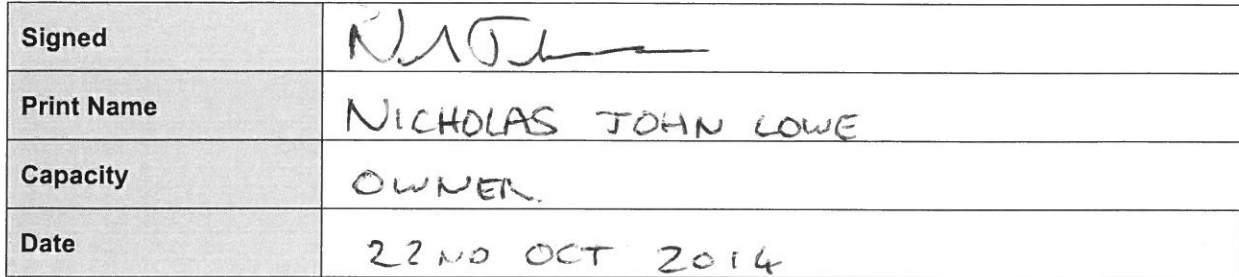 Signed
Print Name NICHOLAS JOHN LOWE
Capacity OWNER.
Date 22ND OCT 2014